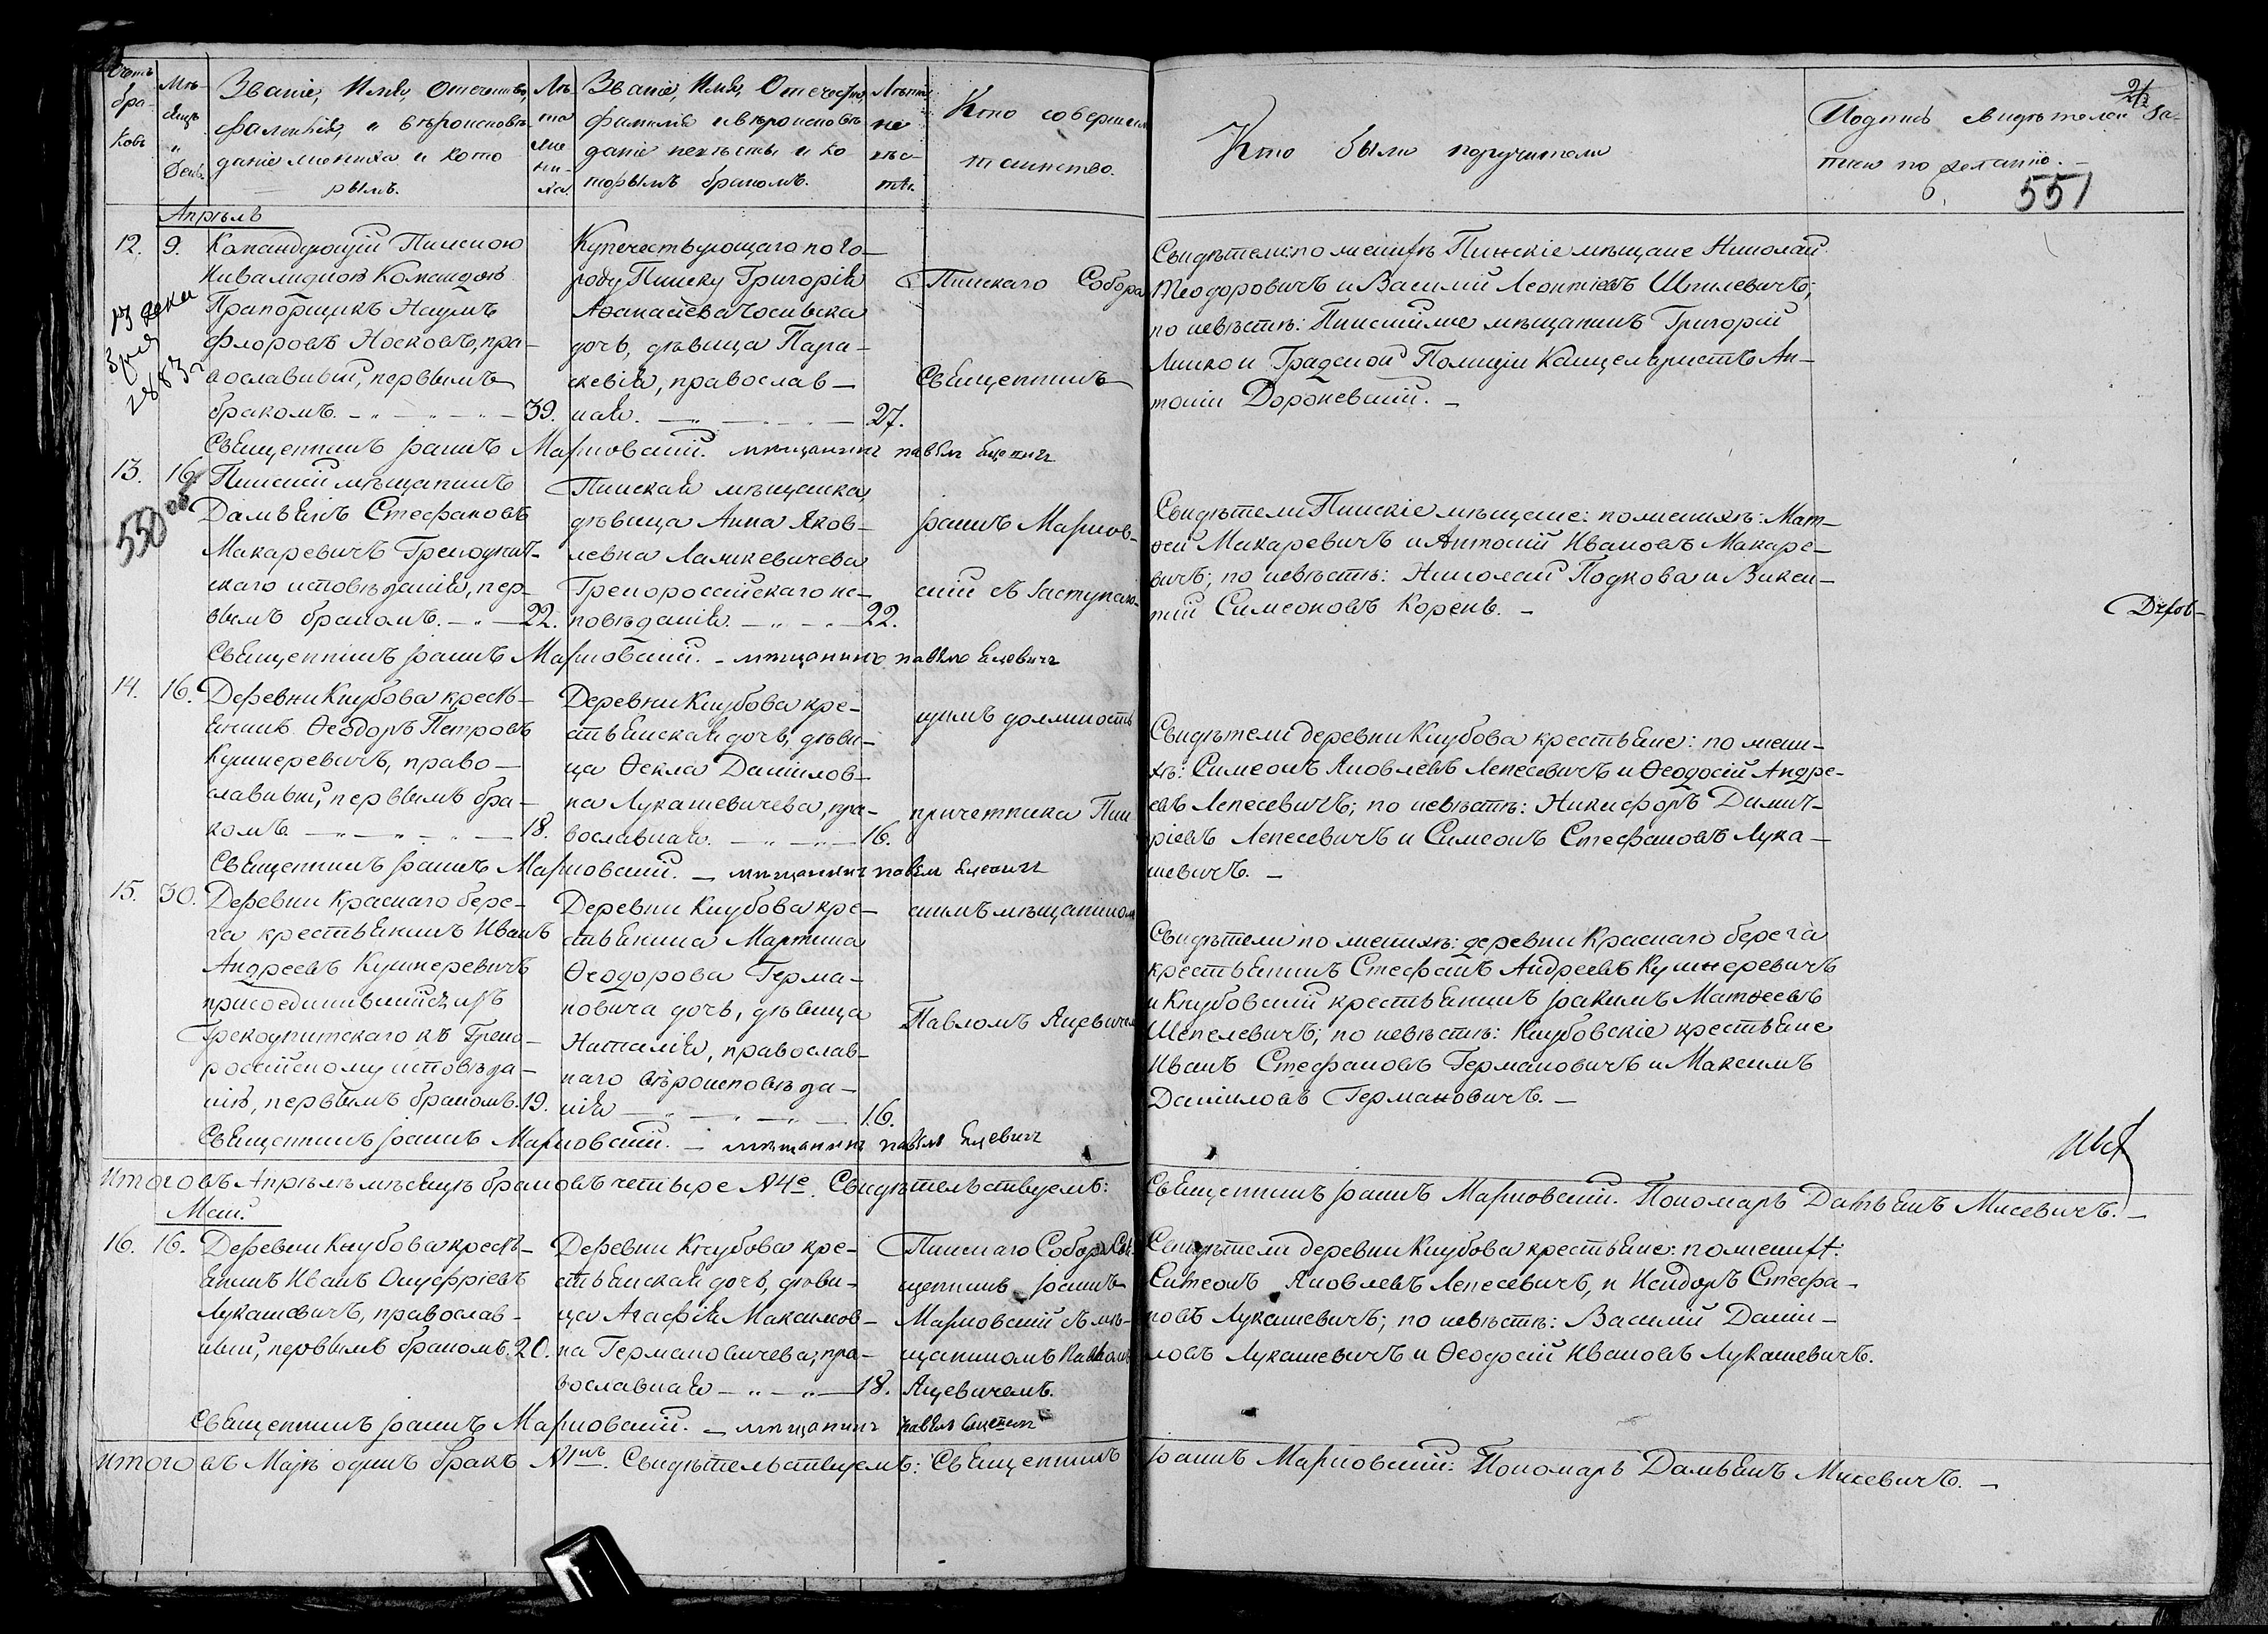 Счетъ браковъ
Мѣсяцъ и День
Званіе, Имя, Отечество,
фамилія, и вѣроисповѣ-
даніе жениха и кото-
рымъ.
Лѣта жениха
Званіе, Имя, Отечество,
фамилія и вѣроисповѣ-
даніе невѣсты и ко-
торымъ бракомъ.
Лѣта невѣсты
Кто совершалъ
таинство.
Кто были поручители
Подпись свидѣтелей за-
писи по желанію.
551
Апрѣль
12. 9.
Командующій Пинскою
Инвалидною Командою
Прапорщикъ Наумъ
Флоровъ Носковъ, пра-
вославный, первымъ
бракомъ. 39.
Купечествующаго по го-
роду Пинску Григорія
дочь, дѣвица Пара-
скевія, православ-
ная. 27.
Пинскаго Собора
Священникъ
Свидѣтели: по женихѣ Пинскіе мѣщане Николай
Теодоровичъ и Василій Леонтіевъ Шпилевичъ;
по невѣстѣ: Пинскій же мѣщанинъ Григорій
и Градской Полиціи Канцеляристъ Ан-
тоній Дороневскій.
Священникъ Іоаннъ Марновскій. мѣщанинъ павелъ
13. 16.
550 об
Пинскій мѣщанинъ
Даміянъ Стефановъ
Макаревичъ Грекоунит-
скаго исповѣданія, пер-
вымъ бракомъ. 22.
Пинская мѣщанка,
дѣвица Анна Яков-
левна
Грекороссійскаго ис-
повѣданія. 22.
Іоаннъ Марнов-
скій съ заступаю-
Свидѣтели Пинскіе мѣщане: по женихѣ: Мат-
ѳей Макаревичъ и Антоній Ивановъ Макаре-
вичъ; по невѣстѣ: Николай Подкова и Викен-
тій Симеоновъ Корень.
Священникъ Іоаннъ Марновскій. мѣщанинъ павелъ Яцевичъ
14. 16.
Деревни Кнубова кресть-
янинъ Ѳеодоръ Петровъ
Кушнеревичъ, право-
славный, первымъ бра-
комъ 18.
Деревни Кнубова кре-
стьянская дочь, дѣви-
ца Ѳекла Данилов-
на Лукашевичева, пра-
вославная. 16.
щимъ должность
причетника Пин-
Свидѣтели деревни Кнубова крестьяне: по жени-
хѣ: Симеонъ Яковлевъ Лепесевичъ и Ѳеодосій Андре-
евъ Лепесевичъ; по невѣстѣ: Никифоръ Димит-
ріевъ Лепесевичъ и Симеонъ Стефановъ Лука-
шевичъ.
Священникъ Іоаннъ Марновскій. мѣщанинъ павелъ Яцевичъ
15. 30.
Деревни Краснаго бере-
га крестьянинъ Иванъ
Андреевъ Кушнеревичъ
присоединившійся изъ
Грекоунитскаго къ Греко-
россійскому исповѣда-
нію, первымъ бракомъ. 19.
Деревни Кнубова кре-
стьянина Мартина
Ѳеодорова Герма-
новича дочь, дѣвица
Наталія, православ-
наго вѣроисповѣда-
нія 16.
скимъ мѣщаниномъ
Павломъ Яцевичемъ
Свидѣтели по женихѣ: деревни Краснаго берега
крестьянинъ Стефанъ Андреевъ Кушнеревичъ
и Кнубовскій крестьянинъ Іоакимъ Матѳеевъ
Шепелевичъ; по невѣстѣ: Кнубовскіе крестьяне
Иванъ Стефановъ Германовичъ и Максимъ
Даниловъ Германовичъ.
Священникъ Іоаннъ Марновскій. мѣщанинъ павелъ Яцевичъ
Итого въ Апрѣлѣ мѣсяцѣ браковъ четыре №4е. Свидѣтельствуемъ: Священникъ Іоаннъ Марновскій. Пономаръ Даміянъ Мисевичъ.
Май.
16. 16.
Деревни Кнубова кресть-
янинъ Иванъ Онуфріевъ
Лукашевичъ, православ-
ный, первымъ бракомъ. 20.
Деревни Кнубова кре-
стьянская дочь, дѣви-
ца Агафія Максимов-
на Германовичева, пра-
вославная 18.
Пинскаго Собора Свя-
щенникъ Іоаннъ
Марновскій съ мѣ-
щаниномъ Павломъ
Яцевичемъ.
Свидѣтели деревни Кнубова крестьяне: по женихѣ:
Симеонъ Яковлевъ Лепесевичъ, и Исидоръ Стефа-
новъ Лукашевичъ; по невѣстѣ: Василій Дани-
ловъ Лукашевичъ и Ѳеодосій Ивановъ Лукашевичъ.
Священникъ Іоаннъ Марновскій. мѣщанинъ павелъ Яцевичъ
Итого въ Маѣ одинъ бракъ №1нъ. Свидѣтельствуемъ: Священникъ Іоаннъ Марновскій. Пономаръ Даміянъ Мисевичъ.